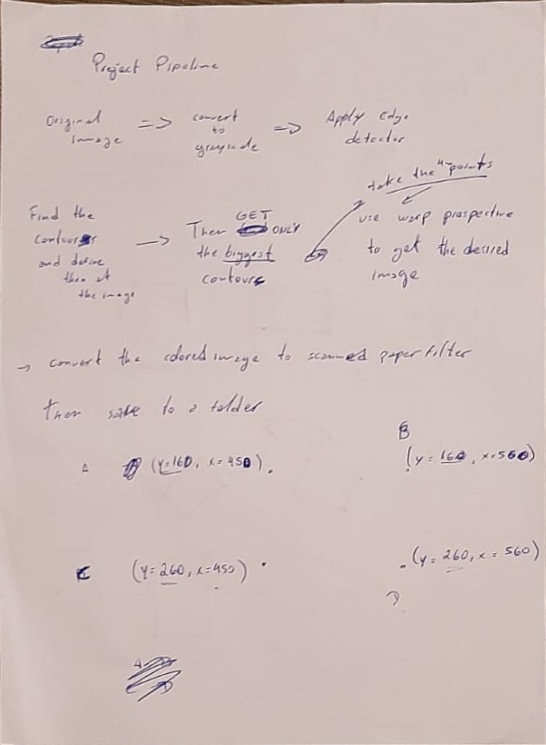 Project Pipeline
Original image => convert to grayscale => Apply Edge detector
take the 4 points
Find the contours and define them at the image -> Then GET ONLY the biggest contours
use warp prespective to get the desired image
-> convert the colored image to scanned paper filter
then save to a folder
A (y=160, x=450).
B (y=160, x=560)
C (y=260, x=450)
(y=260, x=560)